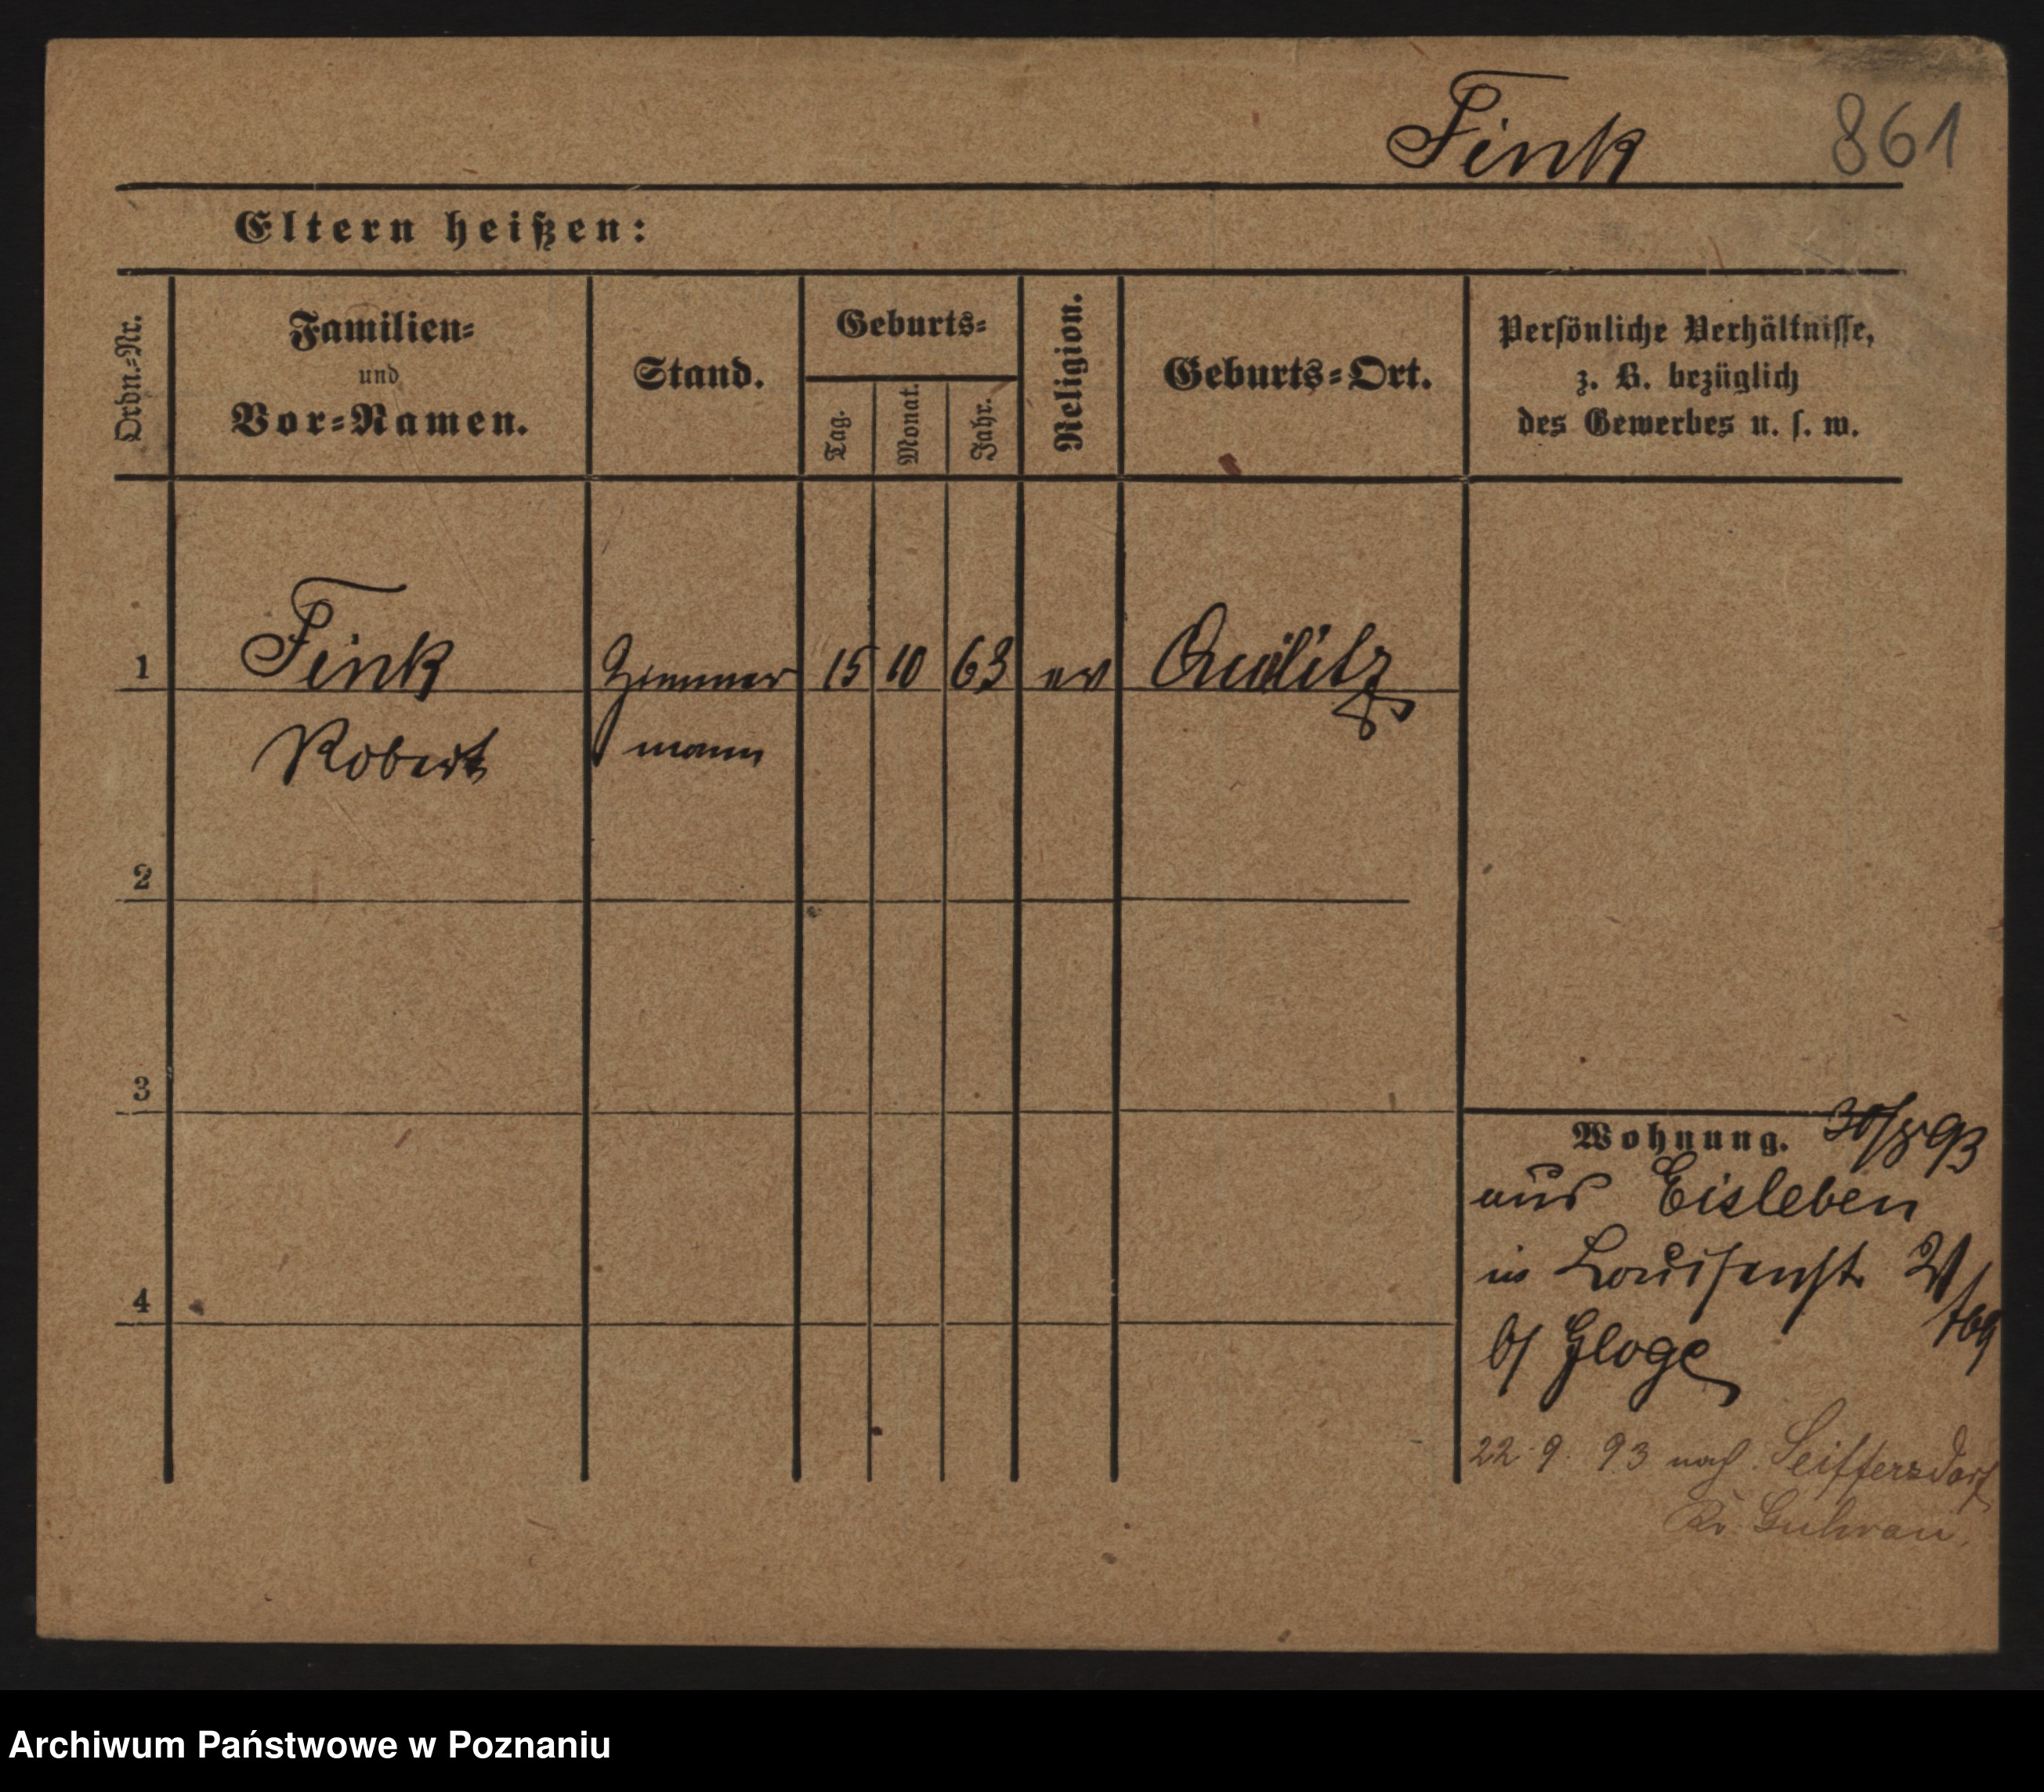 Fink 861
Eltern heißen:
Ordn.=Nr.
Familien=
und
Vor=Namen.
Stand.
Geburts=
Tag.
Monat.
Jahr.
Religion.
Geburts=Ort.
Persönliche Verhältnisse,
z. B. bezüglich
des Gewerbes u. s. w.
1 Fink Zimmer 15 10 63 ev
Robert mann
2
3
4
Wohnung. 30/8 93
aus Eisleben
in Louisenstr
b/ Gloge
22. 9. 93 nach Seiffersdorf
Kr. Guhrau.
Archiwum Państwowe w Poznaniu